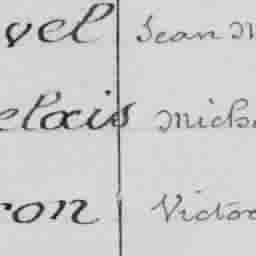 vel Jean M
elais Micha
ron Victor